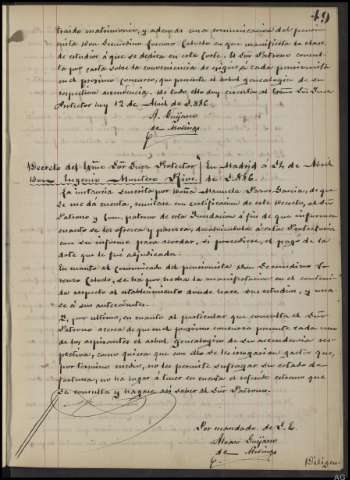 49
traido matrimonio, y además una comunicacion del pensio-
nista Don Gumersindo Lorenzo Estado en que manifiesta la clase
de estudios á que se dedica en esta Corte. El Sor Patrono consul-
ta por carta sobre la conveniencia de exigir á cada pensionista
en el proximo concurso, que presente el árbol genealógico de su
respectiva ascendencia. De todo ello doy cuenta al Excmo Sor Juez
Protector hoy 12 de Abril de 1.886.
A. Guijarro
de Molinga
Decreto del Excmo Sor Juez Protector
Don Eugenio Montero Rios.
En Madrid á 24 de Abril
de 1.886.
La instancia suscrita por Doña Manuela Parro Garcia, de que
se me dá cuenta, remitase con certificacion de este Decreto, al Sor
Patrono y Com-patrono de esta Fundacion á fin de que informen
cuanto se les ofrezca y parezca, devolviéndola á esta Protectoria
con su informe para acordar, si procediese, el pago de la
dote que le fué adjudicada.
En cuanto al comunicado del pensionista Don Gumersindo Lo-
renzo Estado, se tea por hecha la manifestacion en el contenida
respecto al establecimiento donde hace sus estudios, y una-
se á sus antecedentes.
Y, por ultimo, en cuanto al particular que consulta el Sor
Patrono acerca de que en el proximo concurso presente cada uno
de los aspirantes el árbol genealógico de su ascendencia res-
pectiva, como quiera que con ello se les irrogarían gastos que,
por termino medio, no les permite sufragar su estado de
fortuna, no ha lugar á hacer en cuanto al referido extremo que
se consulta y hagase asi saber al Sor Patrono.
Por mandado de S. E.
Alvaro Guijarro
de Molinga
Diligen-